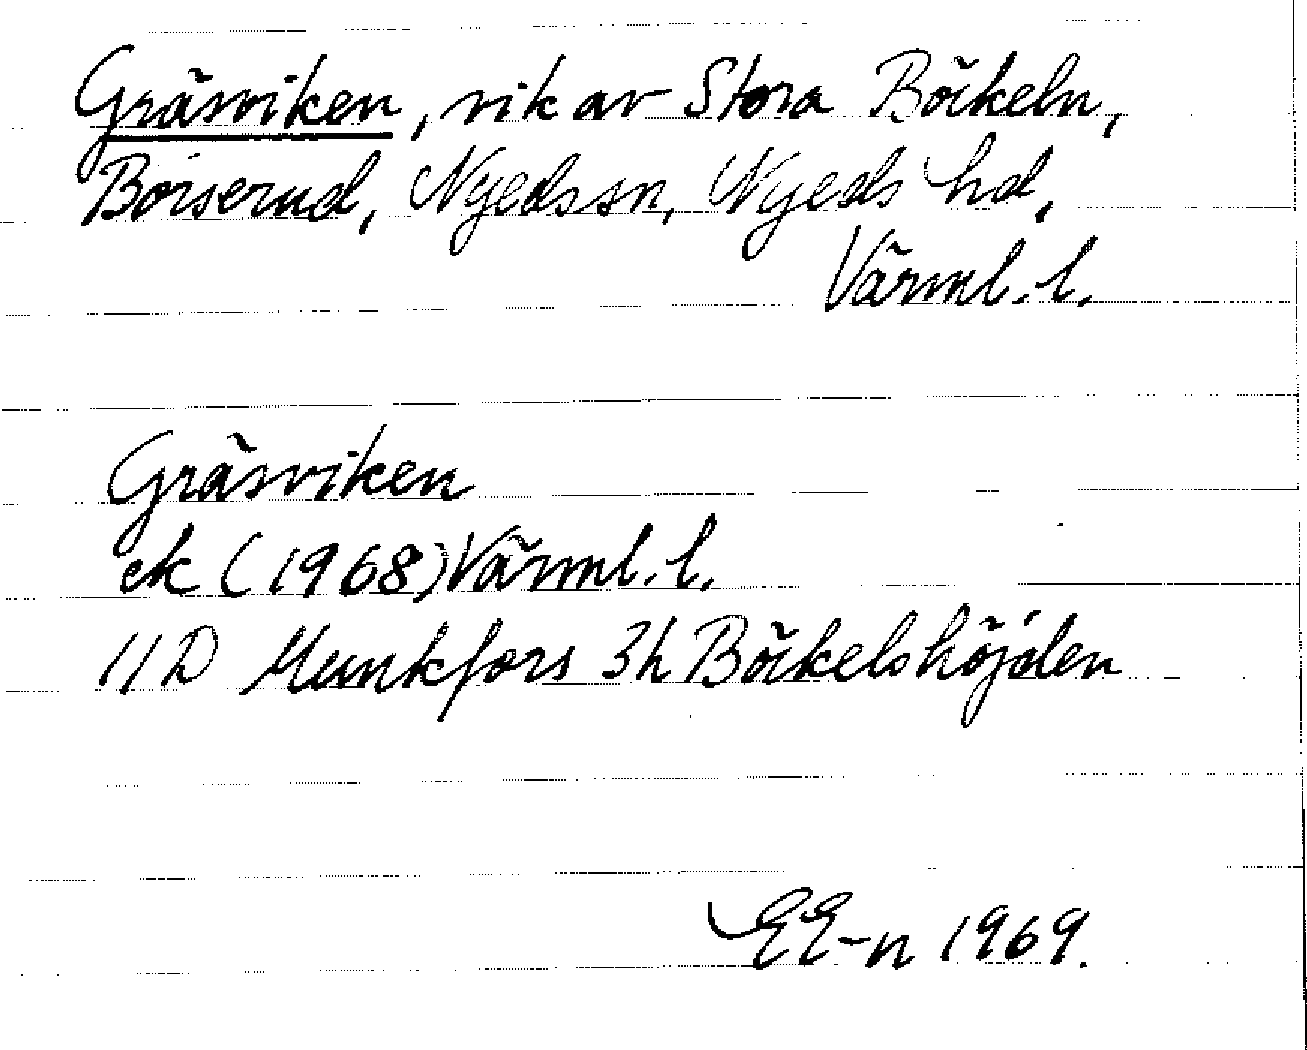 Gräsviken, vik av Stora Böckeln,
Borserud, Nyeds sn, Nyeds hd,
Värml. l.
Gräsviken
ek (1968) Värml. l.
11D Munkfors 3h Böckelshöjden
EE-n 1969.